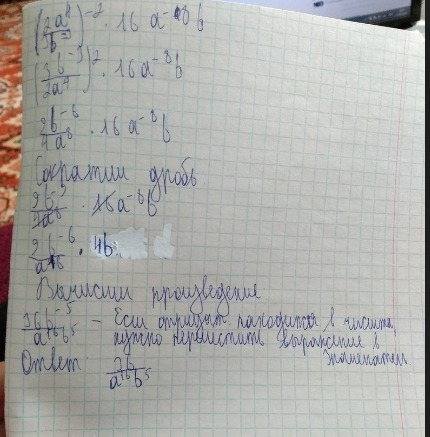 (2a⁴/3b⁻³)⁻² · 16a⁻⁸b
(3b⁻³/2a⁴)² · 16a⁻⁸b
9b⁻⁶/4a⁸ · 16a⁻⁸b
Сократим дробь
9b⁻⁶/4a⁸ · 16a⁻⁸b
9b⁻⁶/a¹⁶ · 4b
Вычислим произведение
36b⁻⁵/a¹⁶ — Если отрицат. находится в числит,
нужно переместить выражение в
знаменатель
Ответ 36/a¹⁶b⁵